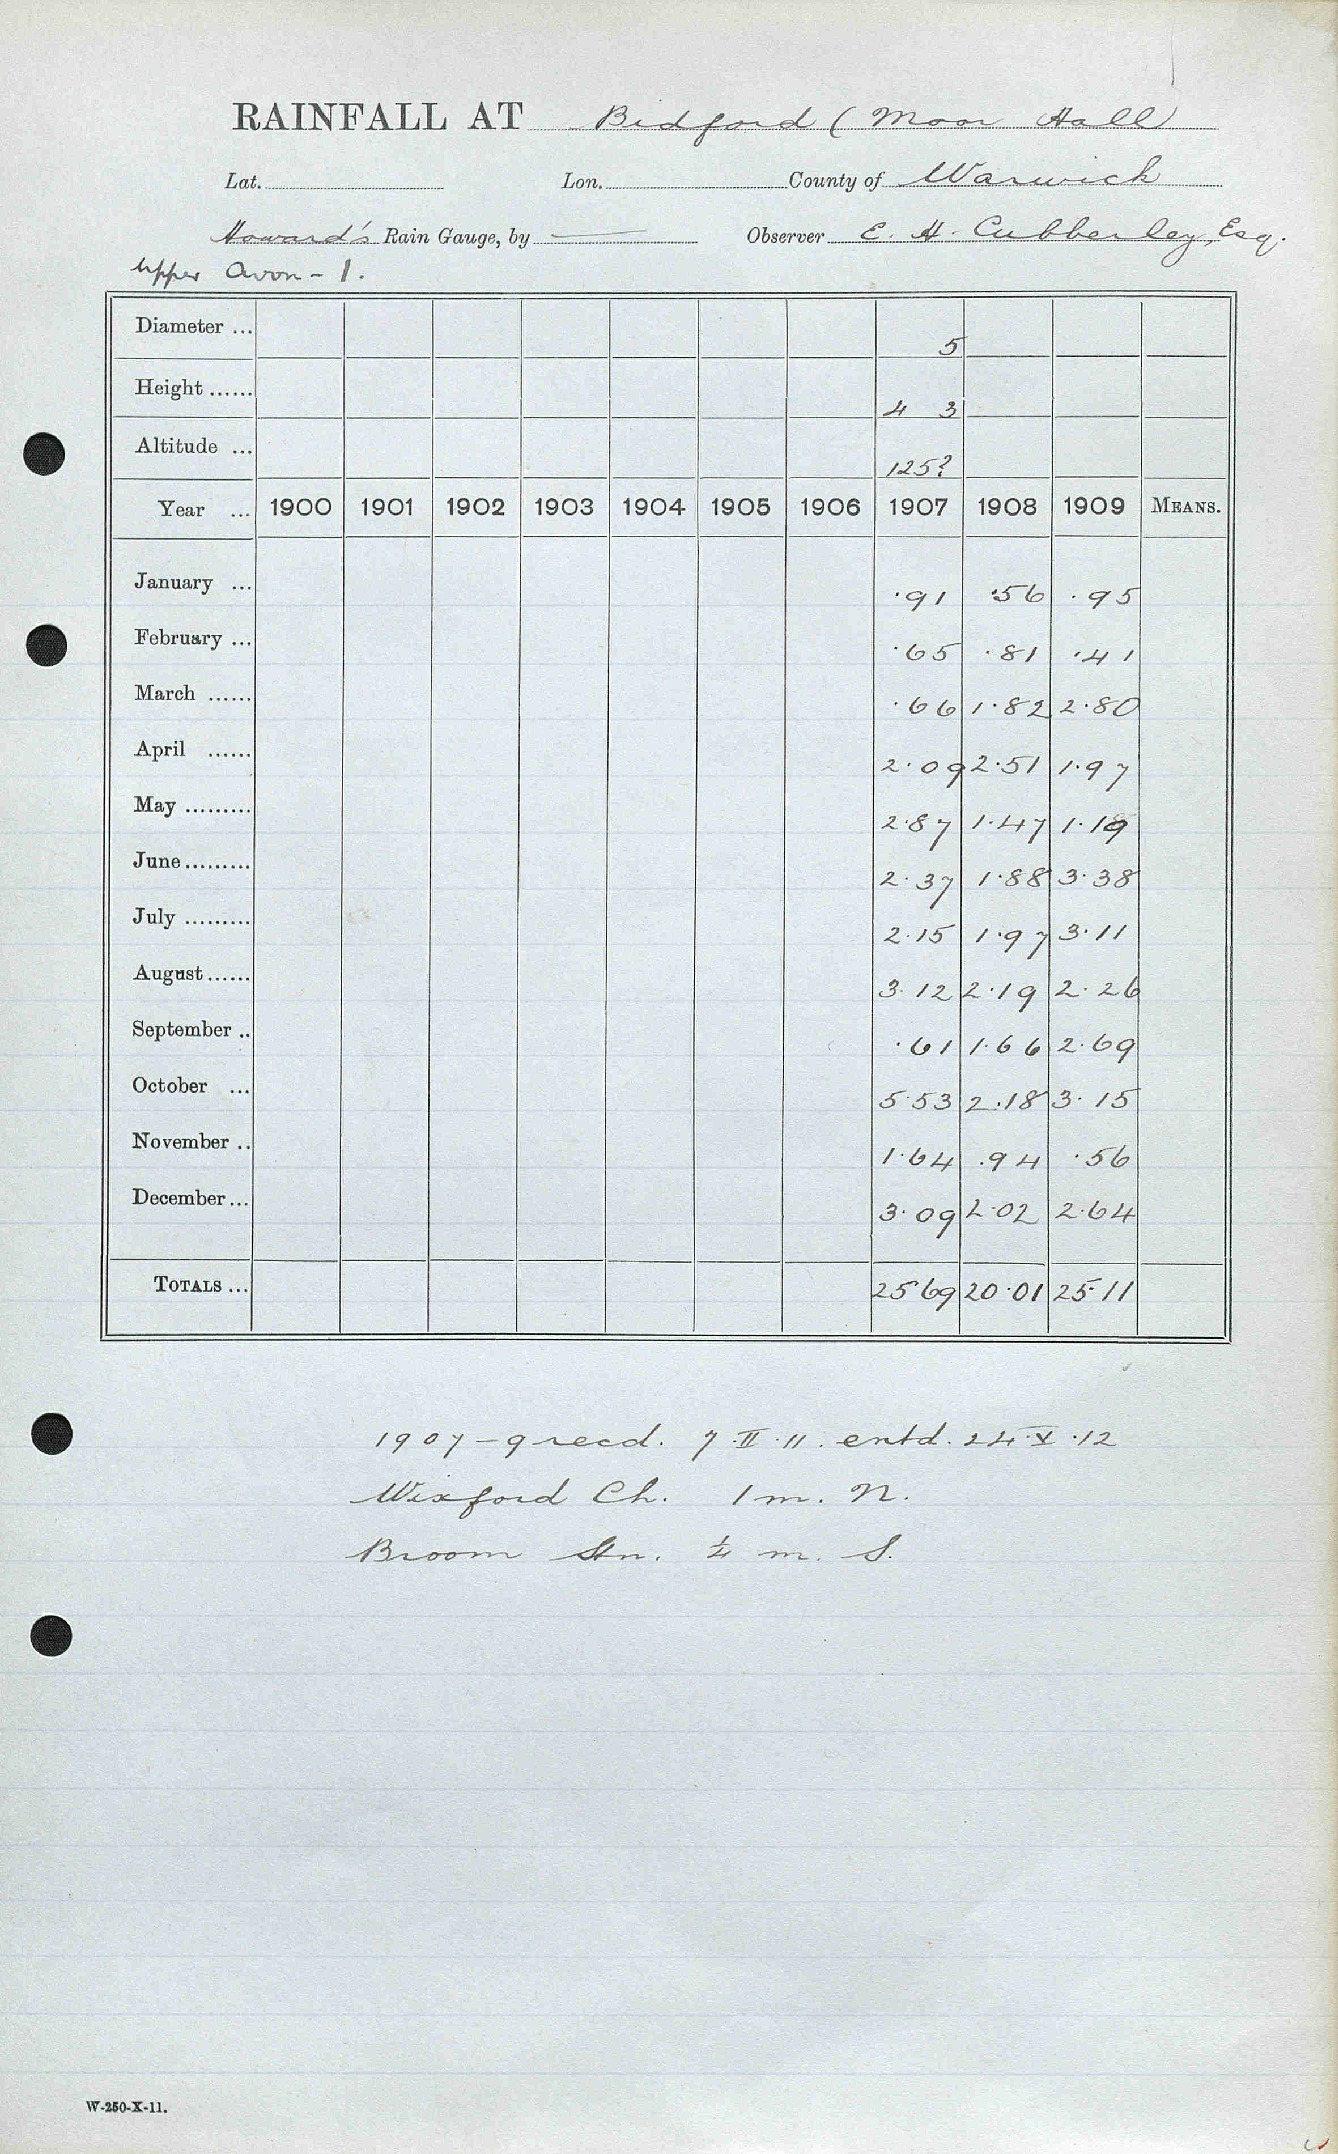 RAINFALL AT Bidford (Moor Hall)
Lat. Lon. County of Warwick
Howard's Rain Gauge, by — Observer E. H. Cubberley, Esq.
Upper Avon - 1.
Diameter ... 5
Height ...... 4 3
Altitude ... 125?
Year ... 1900 1901 1902 1903 1904 1905 1906 1907 1908 1909 MEANS.
January ... .91 .56 .95
February ... .65 .81 .41
March ...... .66 1.82 2.80
April ...... 2.09 2.51 1.97
May ......... 2.87 1.47 1.19
June......... 2.37 1.88 3.38
July ......... 2.15 1.97 3.11
August...... 3.12 2.19 2.26
September .. .61 1.66 2.69
October ... 5.53 2.18 3.15
November .. 1.64 .94 .56
December... 3.09 2.02 2.64
TOTALS ... 25.69 20.01 25.11
1907-9 recd. 7.II.11. entd. 24.X.12
Wixford Ch. 1 m. N.
Broom Stn. ¼ m. S.
W-250-X-11.